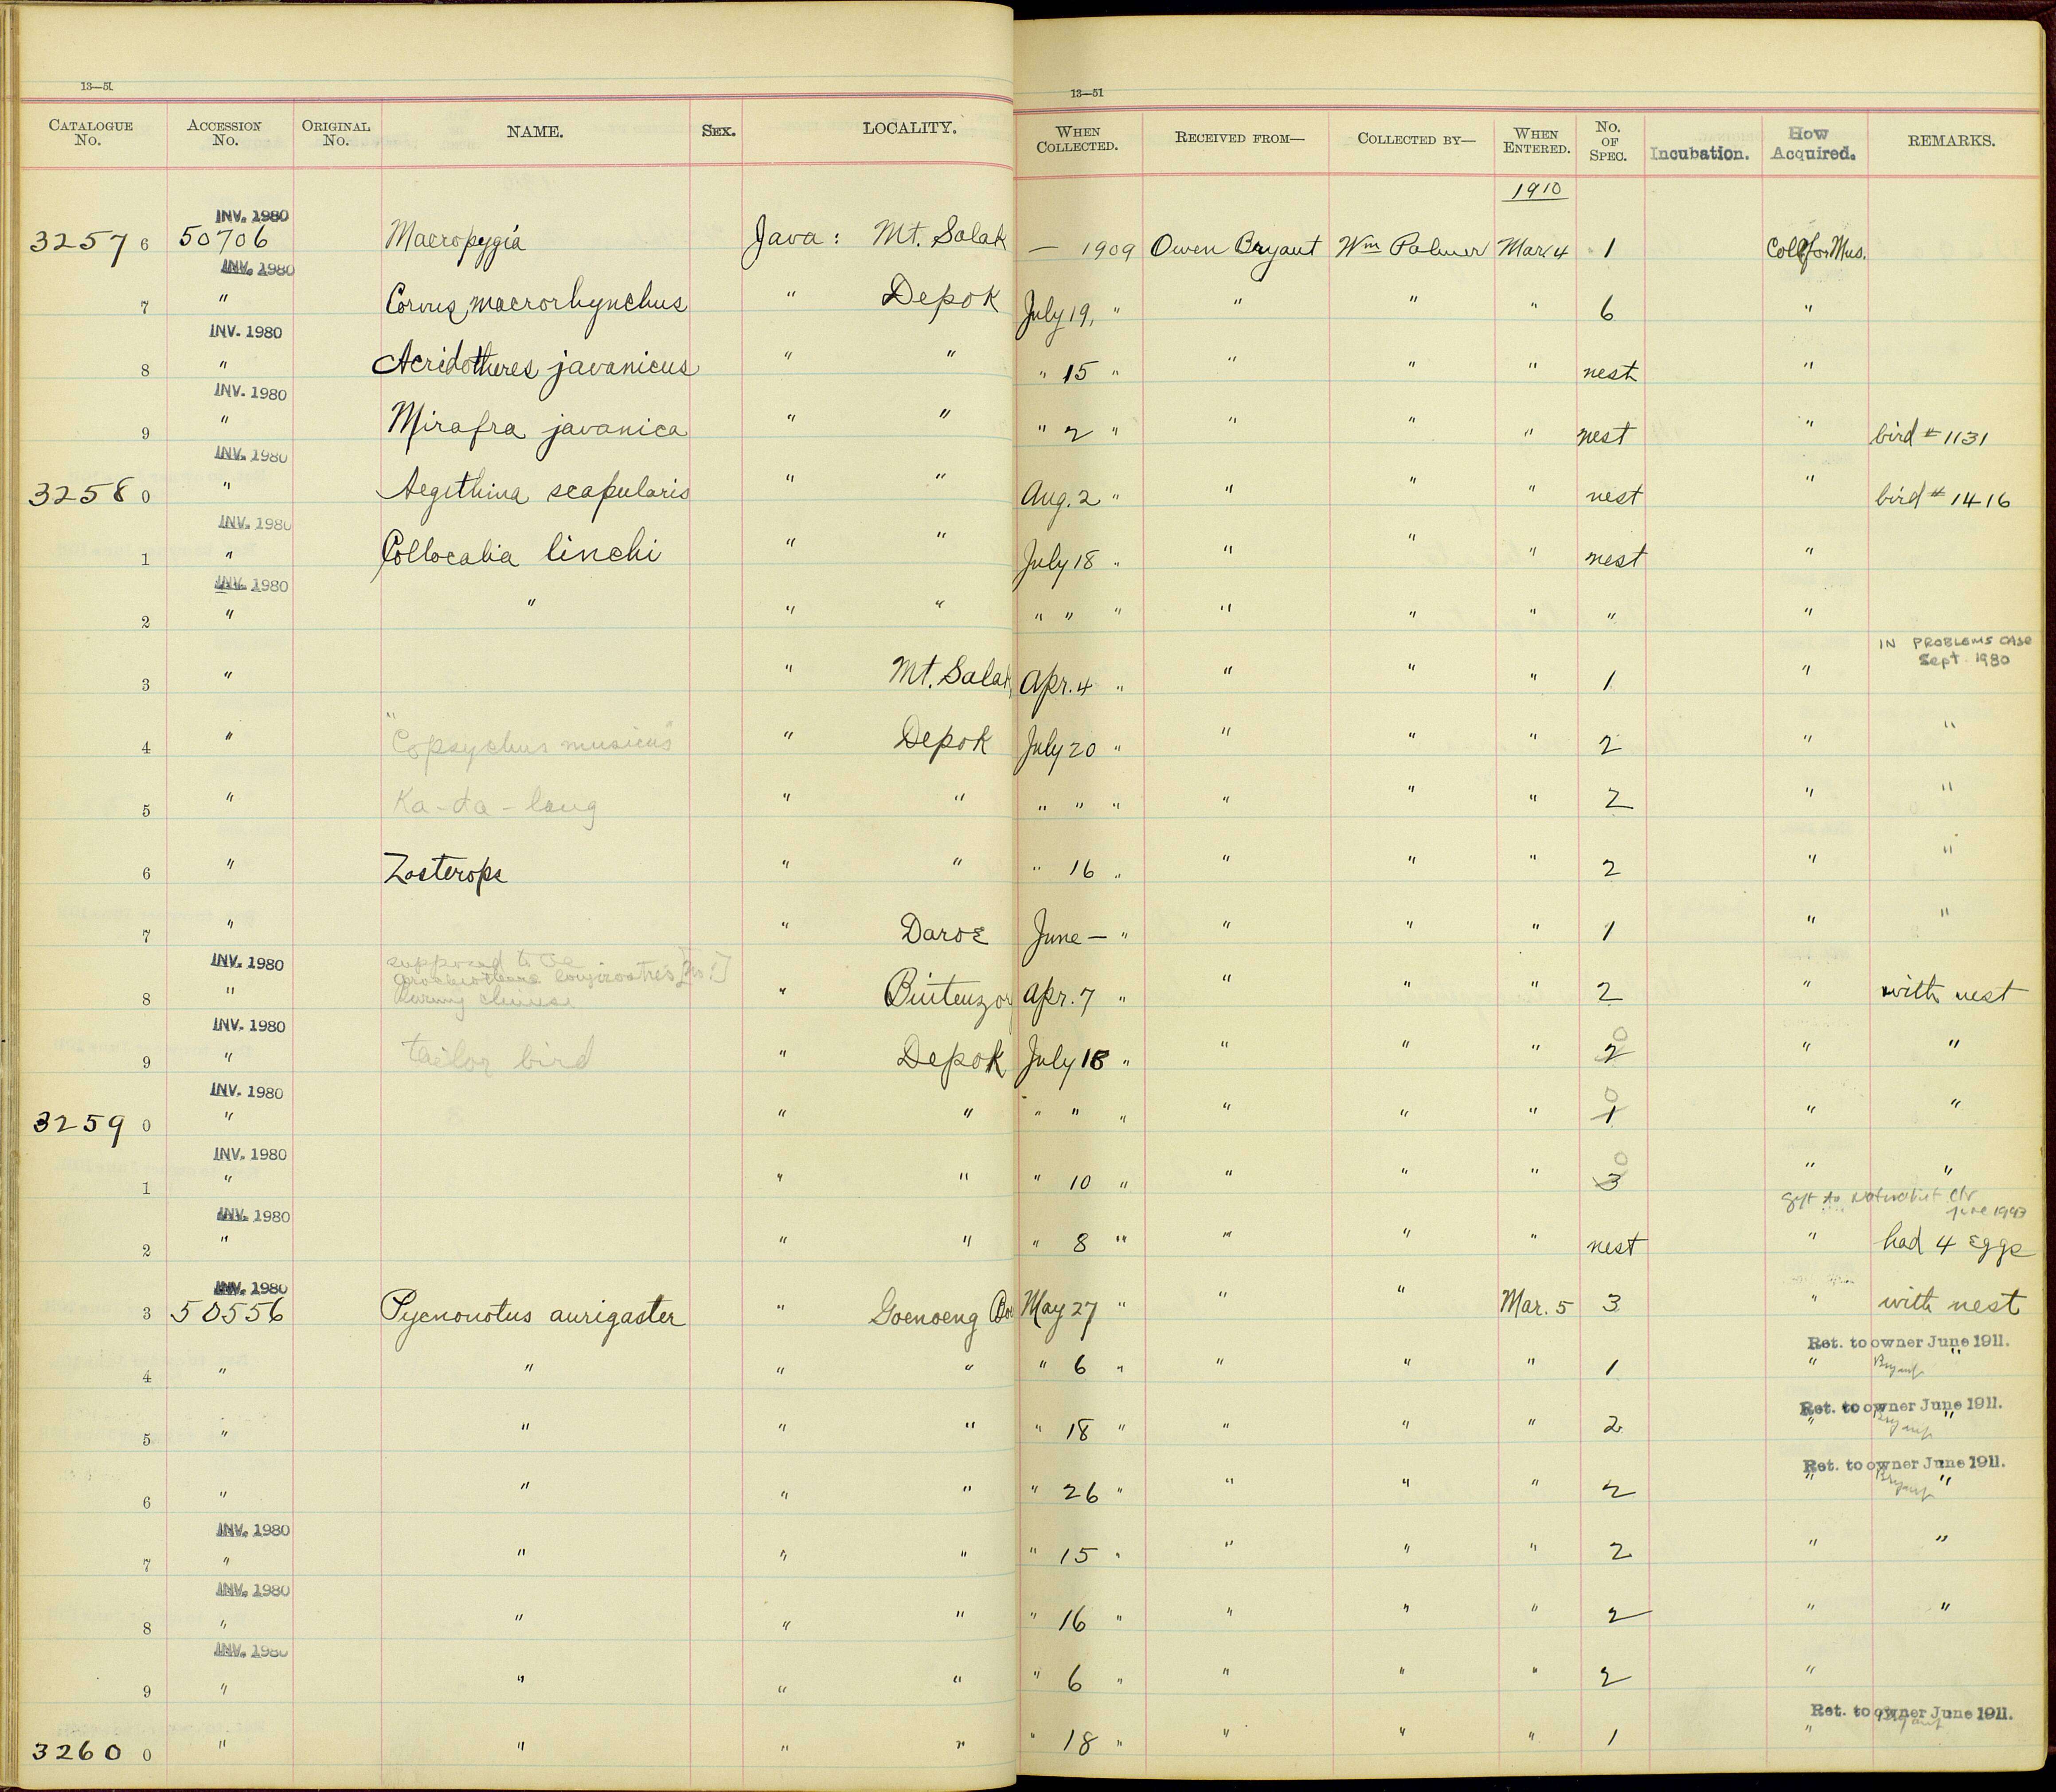 13—51
13—51
CATALOGUE No. ACCESSION No. ORIGINAL No. NAME. SEX. LOCALITY. WHEN COLLECTED. RECEIVED FROM— COLLECTED BY— WHEN ENTERED. No. OF SPEC. Incubation. How Acquired. REMARKS.
1910
INV. 1980
3257 6 50706 Macropygia Java: Mt. Salak — 1909 Owen Bryant Wm Palmer Mar. 4 1 Coll for Mus.
INV. 1980
7 " Corvus macrorhynchus " Depok July 19, " " " " 6 "
INV. 1980
8 " Acridotheres javanicus " " " 15 " " " " nest "
INV. 1980
9 " Mirafra javanica " " " 2 " " " " nest " bird # 1131
INV. 1980
3258 0 " Aegithina scapularis " " Aug. 2 " " " " nest " bird # 1416
INV. 1980
1 " Collocalia linchi " " July 18 " " " " nest "
INV. 1980
2 " " " " " " " " " " " "
IN PROBLEMS CASE
Sept. 1980
3 " " Mt. Salak Apr. 4 " " " " 1 "
4 " "Copsychus musicus" " Depok July 20 " " " " 2 " "
5 " Ka-da-lang " " " " " " " " 2 " "
6 " Zosterops " " " 16 " " " " 2 " "
7 " " Daroe June — " " " " 1 " "
INV. 1980 supposed to be
longirostris [no!]
8 " " Buitenzor Apr. 7 " " " " 2 " with nest
INV. 1980
9 " tailor bird " Depok July 18 " " " " 2 0 " "
INV. 1980
3259 0 " " " " " " " " " 1 0 " "
INV. 1980
1 " " " " 10 " " " " 3 0 " "
gift to Naturalist Ctr
June 1993
INV. 1980
2 " " " " 8 " " " " nest " had 4 eggs
INV. 1980
3 50556 Pycnonotus aurigaster " Goenoeng May 27 " " " Mar. 5 3 " with nest
Ret. to owner June 1911.
4 " " " " " 6 " " " " 1 " Bryant "
Ret. to owner June 1911.
5 " " " " " 18 " " " " 2 " Bryant "
Ret. to owner June 1911.
6 " " " " " 26 " " " " 2 " Bryant "
INV. 1980
7 " " " " " 15 " " " " 2 " "
INV. 1980
8 " " " " " 16 " " " " 2 " "
INV. 1980
9 " " " " " 6 " " " " 2 "
Ret. to owner June 1911.
3260 0 " " " " " 18 " " " " 1 " Bryant